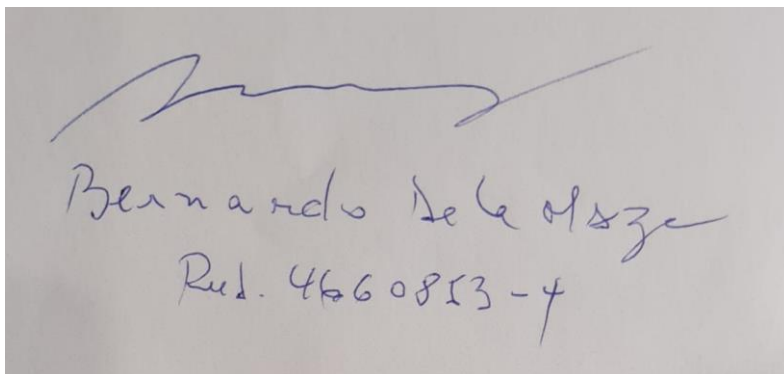 Bernardo De la Maza
Rut. 4660853-4